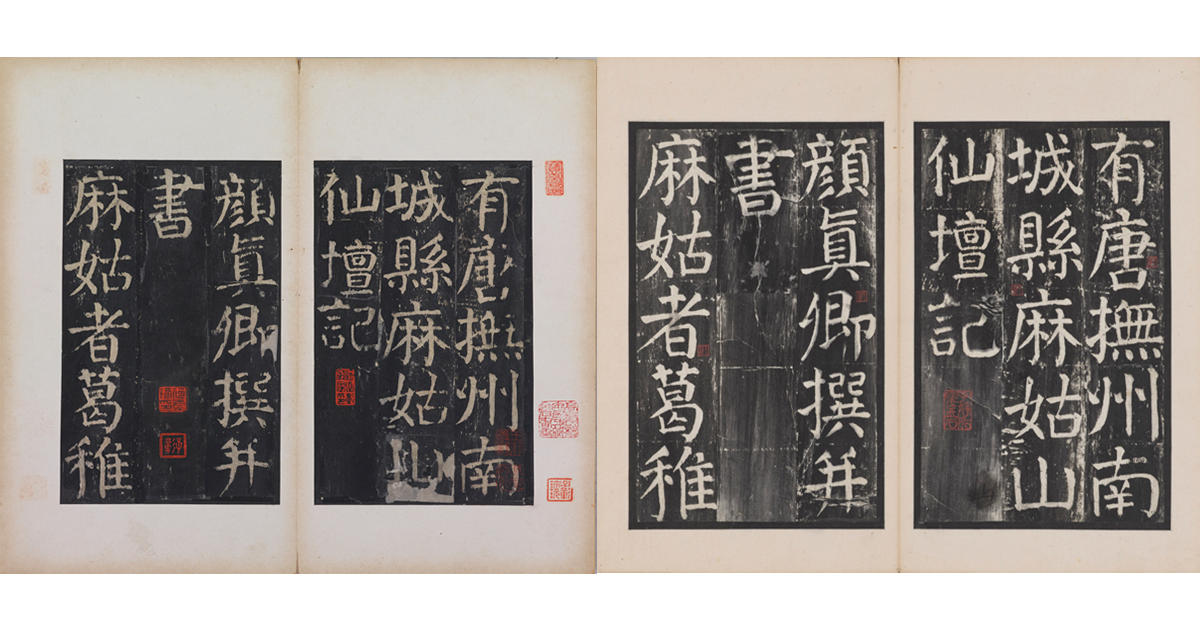 有唐撫州南
城縣麻姑山
仙壇記
顔眞卿撰并
書
麻姑者葛稚
有唐撫州南
城縣麻姑山
仙壇記
顔眞卿撰并
書
麻姑者葛稚